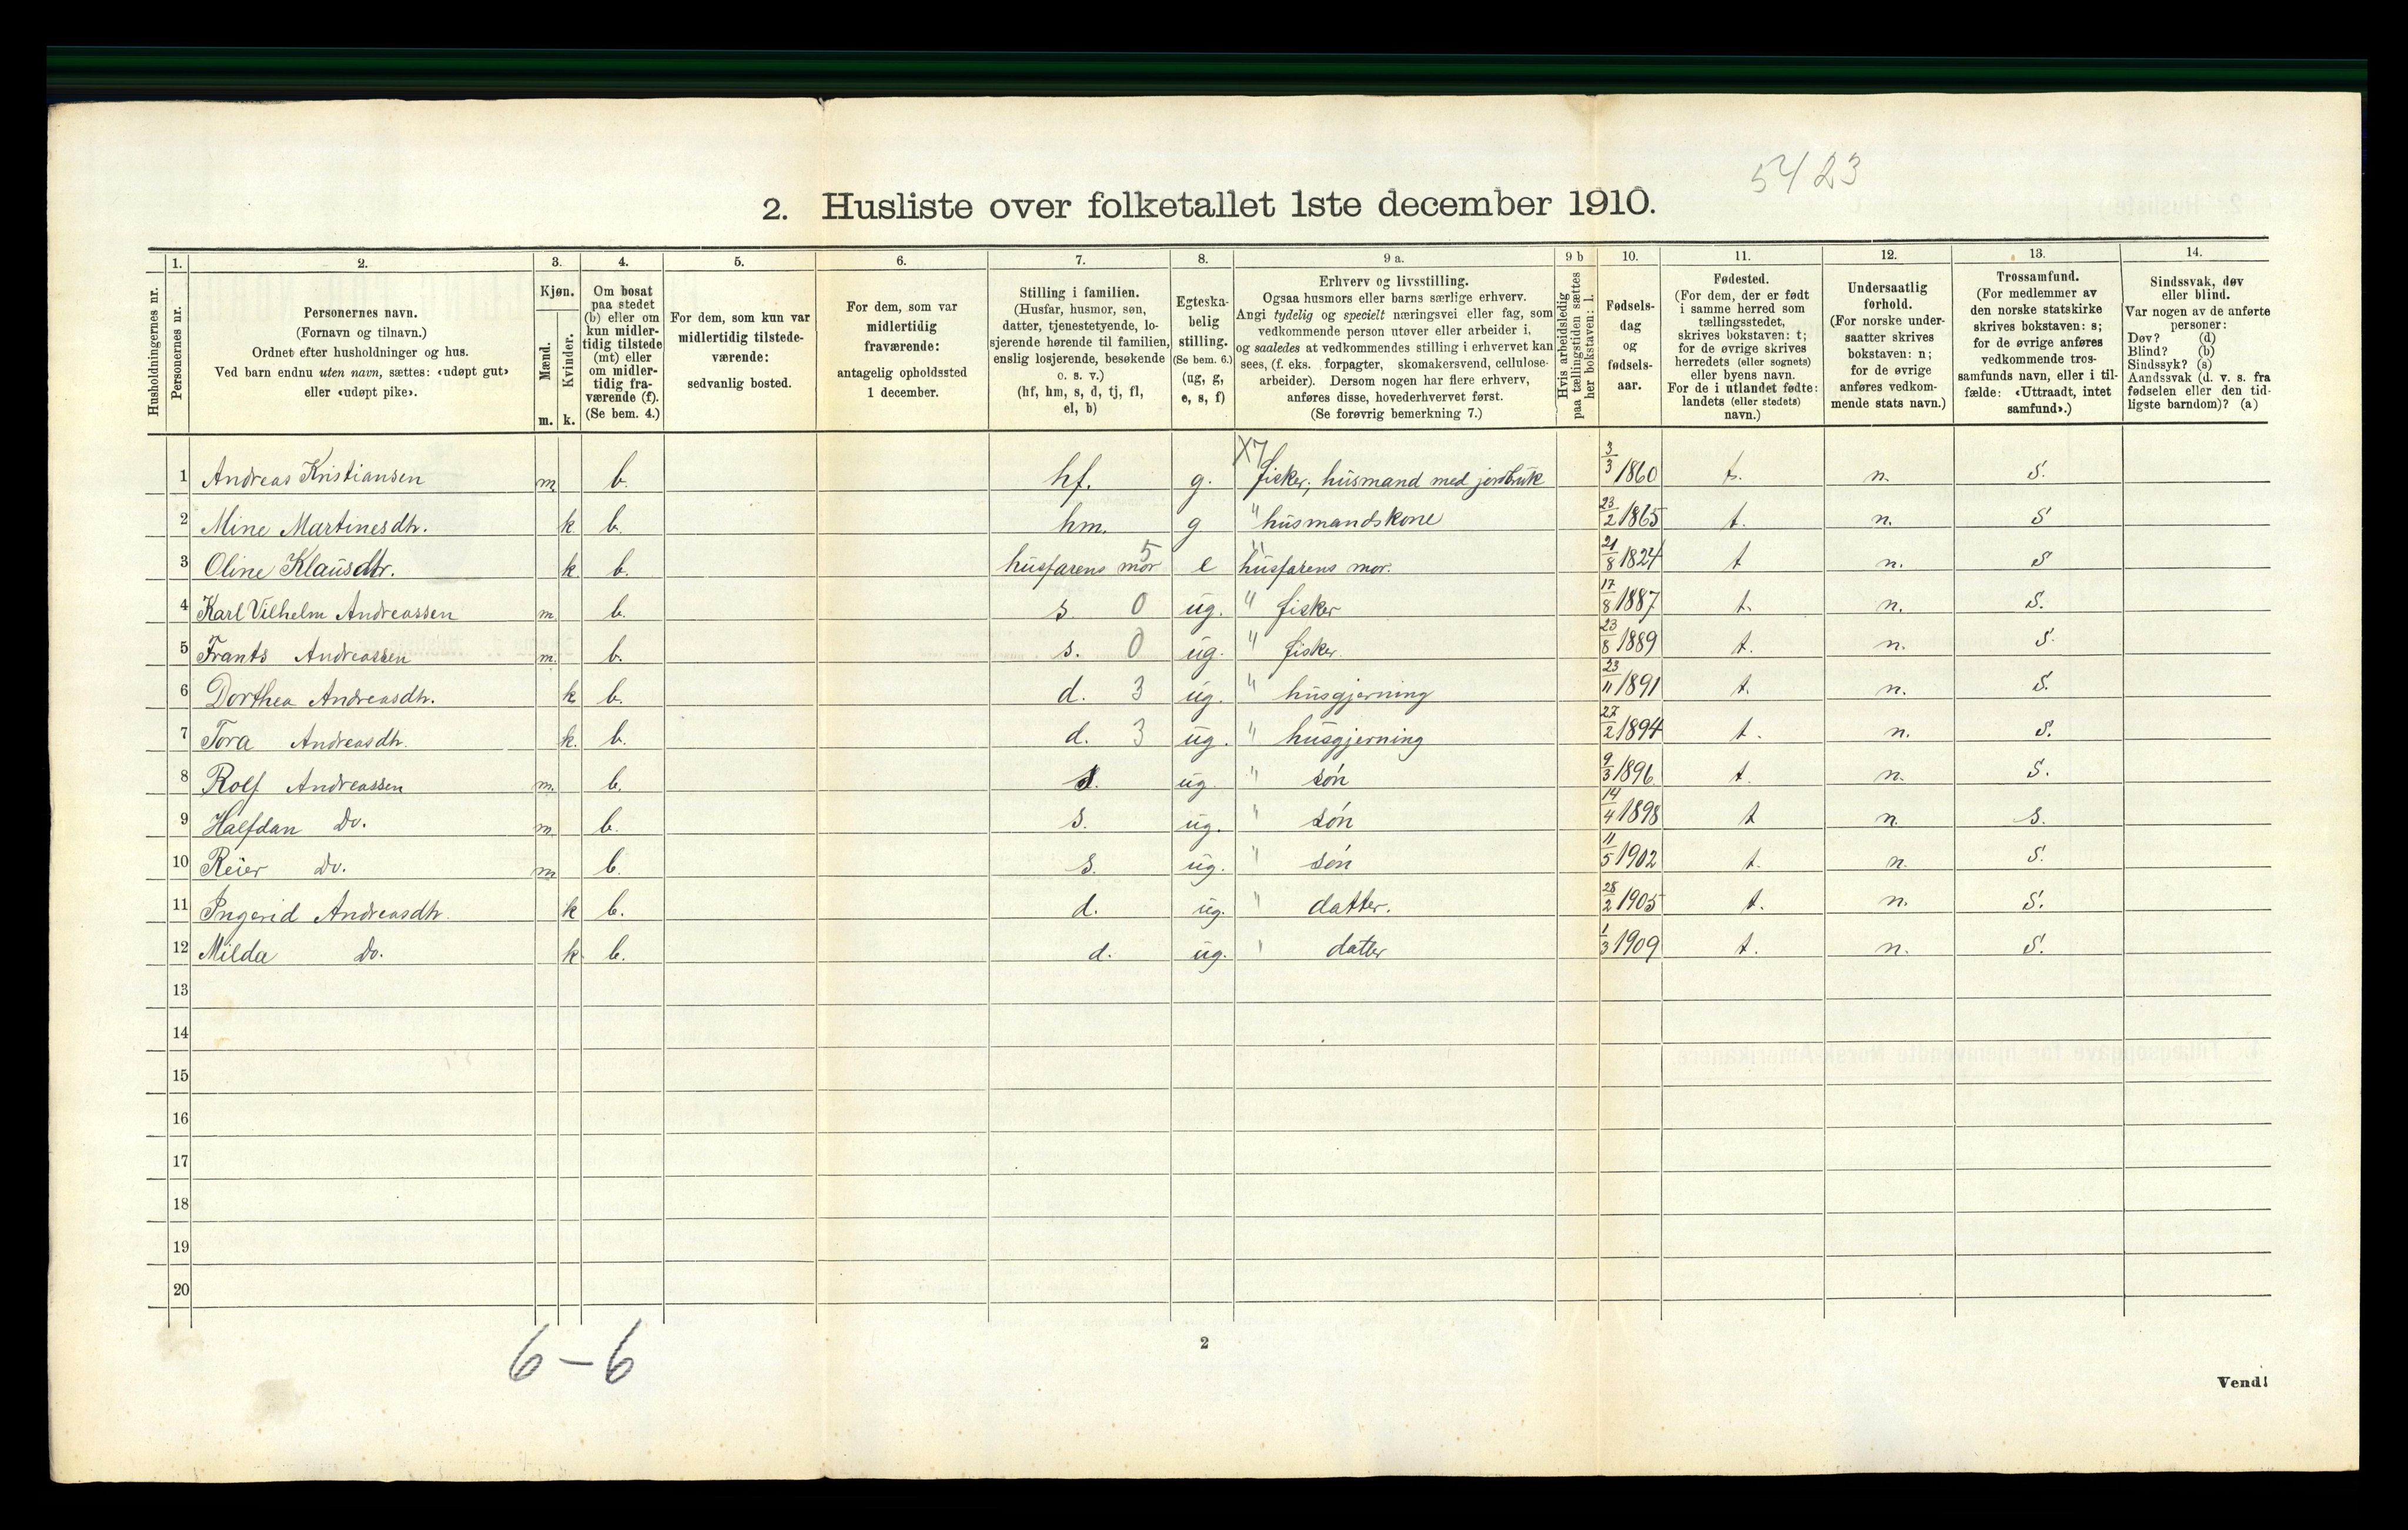 5423
2. Husliste over folketallet 1ste december 1910.
Husholdningernes nr.
1. Personernes nr.
2. Personernes navn.
(Fornavn og tilnavn.)
Ordnet efter husholdninger og hus.
Ved barn endnu uten navn, sættes: «udøpt gut»
eller «udøpt pike».
3. Kjøn.
Mænd. m.
Kvinder. k.
4. Om bosat
paa stedet
(b) eller om
kun midler-
tidig tilstede
(mt) eller
om midler-
tidig fra-
værende (f).
(Se bem. 4.)
5. For dem, som kun var
midlertidig tilstede-
værende:
sedvanlig bosted.
6. For dem, som var
midlertidig
fraværende:
antagelig opholdssted
1 december.
7. Stilling i familien.
(Husfar, husmor, søn,
datter, tjenestetyende, lo-
sjerende hørende til familien,
enslig losjerende, besøkende
o. s. v.)
(hf, hm, s, d, tj, fl,
el, b)
8. Egteska-
belig
stilling.
(Se bem. 6.)
(ug, g,
e, s, f)
9 a. Erhverv og livsstilling.
Ogsaa husmors eller barns særlige erhverv.
Angi tydelig og specielt næringsvei eller fag, som
vedkommende person utøver eller arbeider i,
og saaledes at vedkommendes stilling i erhvervet kan
sees, (f. eks. forpagter, skomakersvend, cellulose-
arbeider). Dersom nogen har flere erhverv,
anføres disse, hovederhvervet først.
(Se forøvrig bemerkning 7.)
9 b Hvis arbeidsledig
paa tællingstiden sættes
her bokstaven: l.
10. Fødsels-
dag
og
fødsels-
aar.
11. Fødested.
(For dem, der er født
i samme herred som
tællingsstedet,
skrives bokstaven: t;
for de øvrige skrives
herredets (eller sognets)
eller byens navn.
For de i utlandet fødte:
landets (eller stedets)
navn.)
12. Undersaatlig
forhold.
(For norske under-
saatter skrives
bokstaven: n;
for de øvrige
anføres vedkom-
mende stats navn.)
13. Trossamfund.
(For medlemmer av
den norske statskirke
skrives bokstaven: s;
for de øvrige anføres
vedkommende tros-
samfunds navn, eller i til-
fælde: «Uttraadt, intet
samfund».)
14. Sindssvak, døv
eller blind.
Var nogen av de anførte
personer:
Døv? (d)
Blind? (b)
Sindssyk? (s)
Aandssvak (d. v. s. fra
fødselen eller den tid-
ligste barndom)? (a)
X7
1 Andreas Kristiansen m b. hf. g. fisker, husmand med jordbruk 3/3 1860 t. n. S.
2 Mine Martinesdtr. k b. hm. g " husmandskone 23/2 1865 t. n. S
3 Oline Klausdtr. k. b. husfarens mor 5 e " husfarens mor. 21/8 1824 t n. S
4 Karl Vilhelm Andreassen m. b. s. 0 ug. " fisker 17/8 1887 t. n. S.
5 Frants Andreassen m. b. s. 0 ug. " fisker. 23/8 1889 t. n. S.
6 Dorthea Andreasdtr. k b. d. 3 ug. " husgjerning 23/11 1891 t. n. S.
7 Tora Andreasdtr. k. b. d. 3 ug. " husgjerning 27/2 1894 t. n. S.
8 Rolf Andreassen m. b. s. ug. " søn 9/3 1896. t. n. S.
9 Halfdan Do. m. b. s. ug. " søn 14/4 1898 t n. s.
10 Reier Do. m b. s. ug. " søn 11/5 1902 t. n. S.
11 Ingerid Andreasdtr. k b. d. ug. " datter. 28/2 1905 t. n. S.
12 Milda Do. k b. d. ug. " datter 1/3 1909 t. n. S.
13
14
15
16
17
18
19
20
6-6
2
Vend!